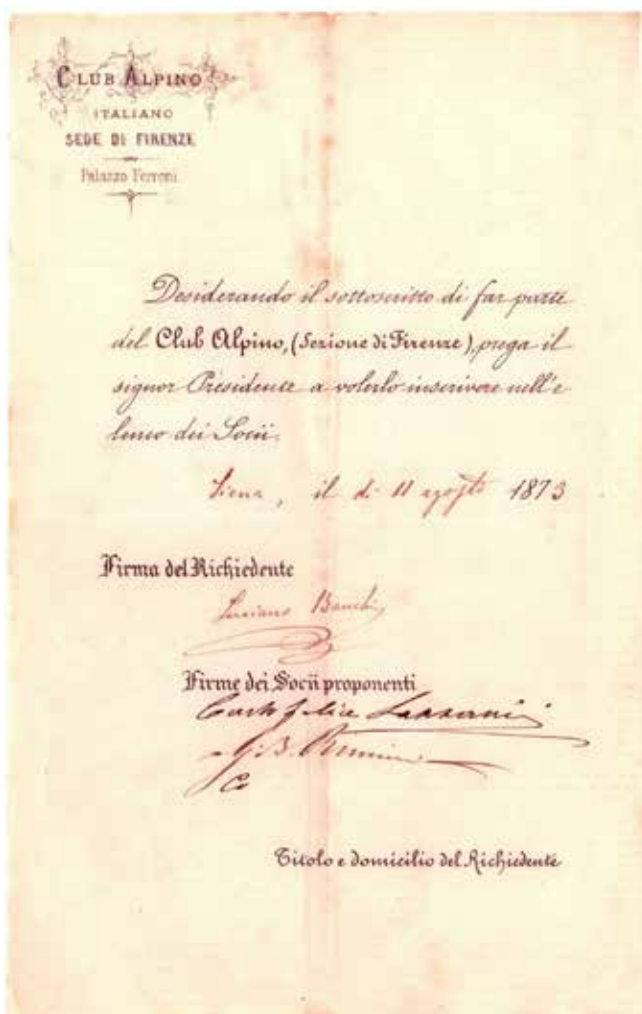 CLUB ALPINO
ITALIANO
SEDE DI FIRENZE
Palazzo Ferroni
Desiderando il sottoscritto di far parte
del Club Alpino, (Sezione di Firenze), prega il
signor Presidente a volerlo inscrivere nell'e
lenco dei Socii.
Siena, il dì 11 agosto 1873
Firma del Richiedente
Luciano Banchi
Firme dei Socii proponenti
Carlo Felice
G. B.
Titolo e domicilio del Richiedente